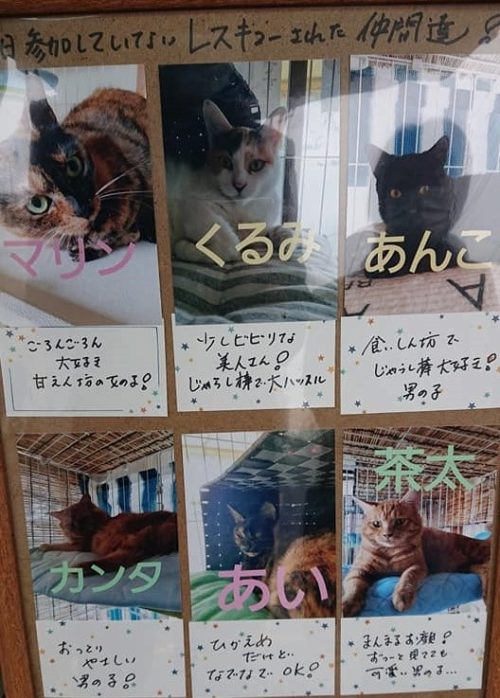 日参加していない レスキューされた 仲間達！
マリン
くるみ
あんこ
ごろんごろん
大好き
甘えん坊の女の子！
少しビビリな
美人さん！
じゃらし棒で大ハッスル
食いしん坊で
じゃらし棒大好き！
男の子
カンタ
あい
茶太
おっとり
やさしい
男の子！
ひかえめ
だけど…
なでなでOK！
まんまるお顔！
ずーっと見てても
可愛い男の子…